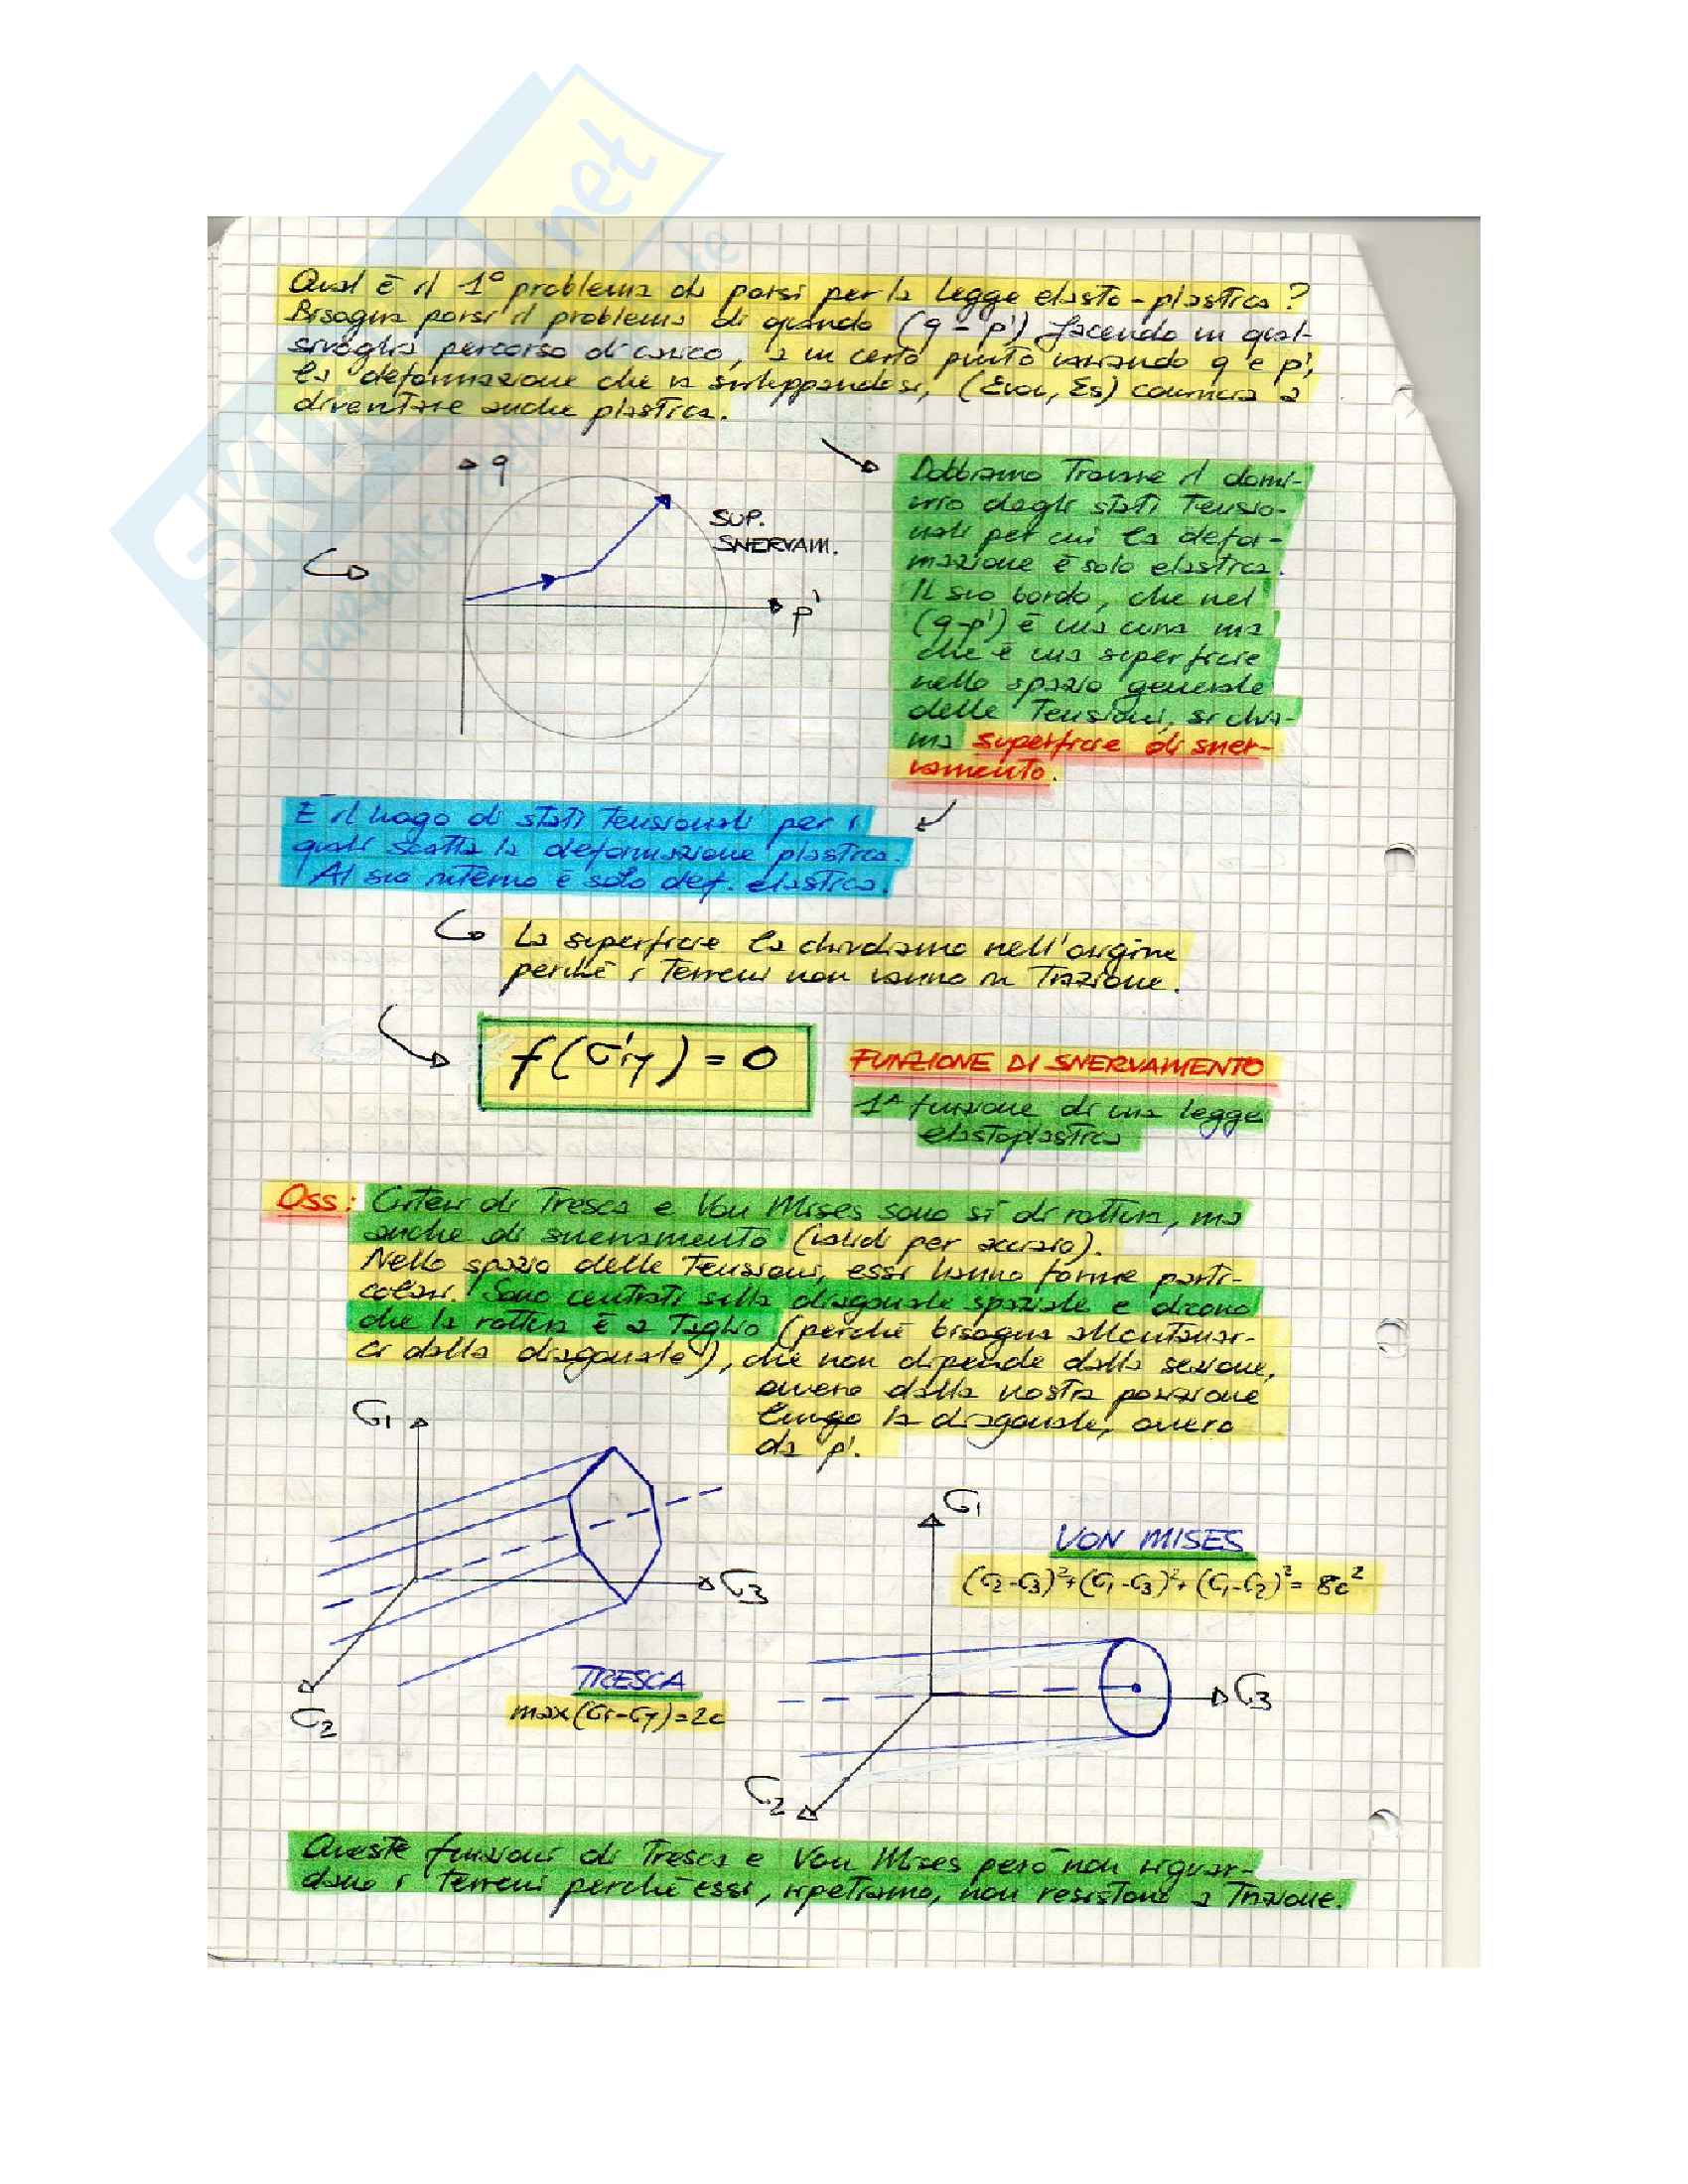 Qual è il 1° problema da porsi per la legge elasto-plastica?
Bisogna porsi il problema di quando (q-p') facendo un qual-
sivoglia percorso di carico, a un certo punto variando q e p',
la deformazione che va sviluppandosi, (εvol, εs) comincia a
diventare anche plastica.
q
SUP.
SNERVAM.
p'
Dobbiamo Trovare il domi-
nio degli stati Tensio-
nali per cui la defor-
mazione è solo elastica.
Il suo bordo, che nel
(q-p') è una curva ma
che è una superficie
nello spazio generale
delle Tensioni, si chia-
ma superficie di sner-
vamento.
È il luogo di stati Tensionali per i
quali scatta la deformazione plastica.
Al suo interno è solo def. elastica.
La superficie la chiudiamo nell'origine
perchè i Terreni non vanno in Trazione.
f(σ'ij) = 0
FUNZIONE DI SNERVAMENTO
1ª funzione di una legge
elastoplastica
Oss: Criteri di Tresca e Von Mises sono sì di rottura, ma
anche di snervamento (validi per acciaio).
Nello spazio delle Tensioni, essi hanno forme parti-
colari. Sono centrati sulla diagonale spaziale e dicono
che la rottura è a Taglio (perchè bisogna allontanar-
ci dalla diagonale), che non dipende dalla sezione,
ovvero dalla nostra posizione
lungo la diagonale, ovvero
da p'.
σ1
σ3
σ2
TRESCA
max(σi-σj)=2c
σ1
VON MISES
(σ2-σ3)²+(σ1-σ3)²+(σ1-σ2)²= 8c²
σ3
σ2
Queste funzioni di Tresca e Von Mises però non riguar-
dano i Terreni perchè essi, ripetiamo, non resistono a Trazione.
SKUOLA.net